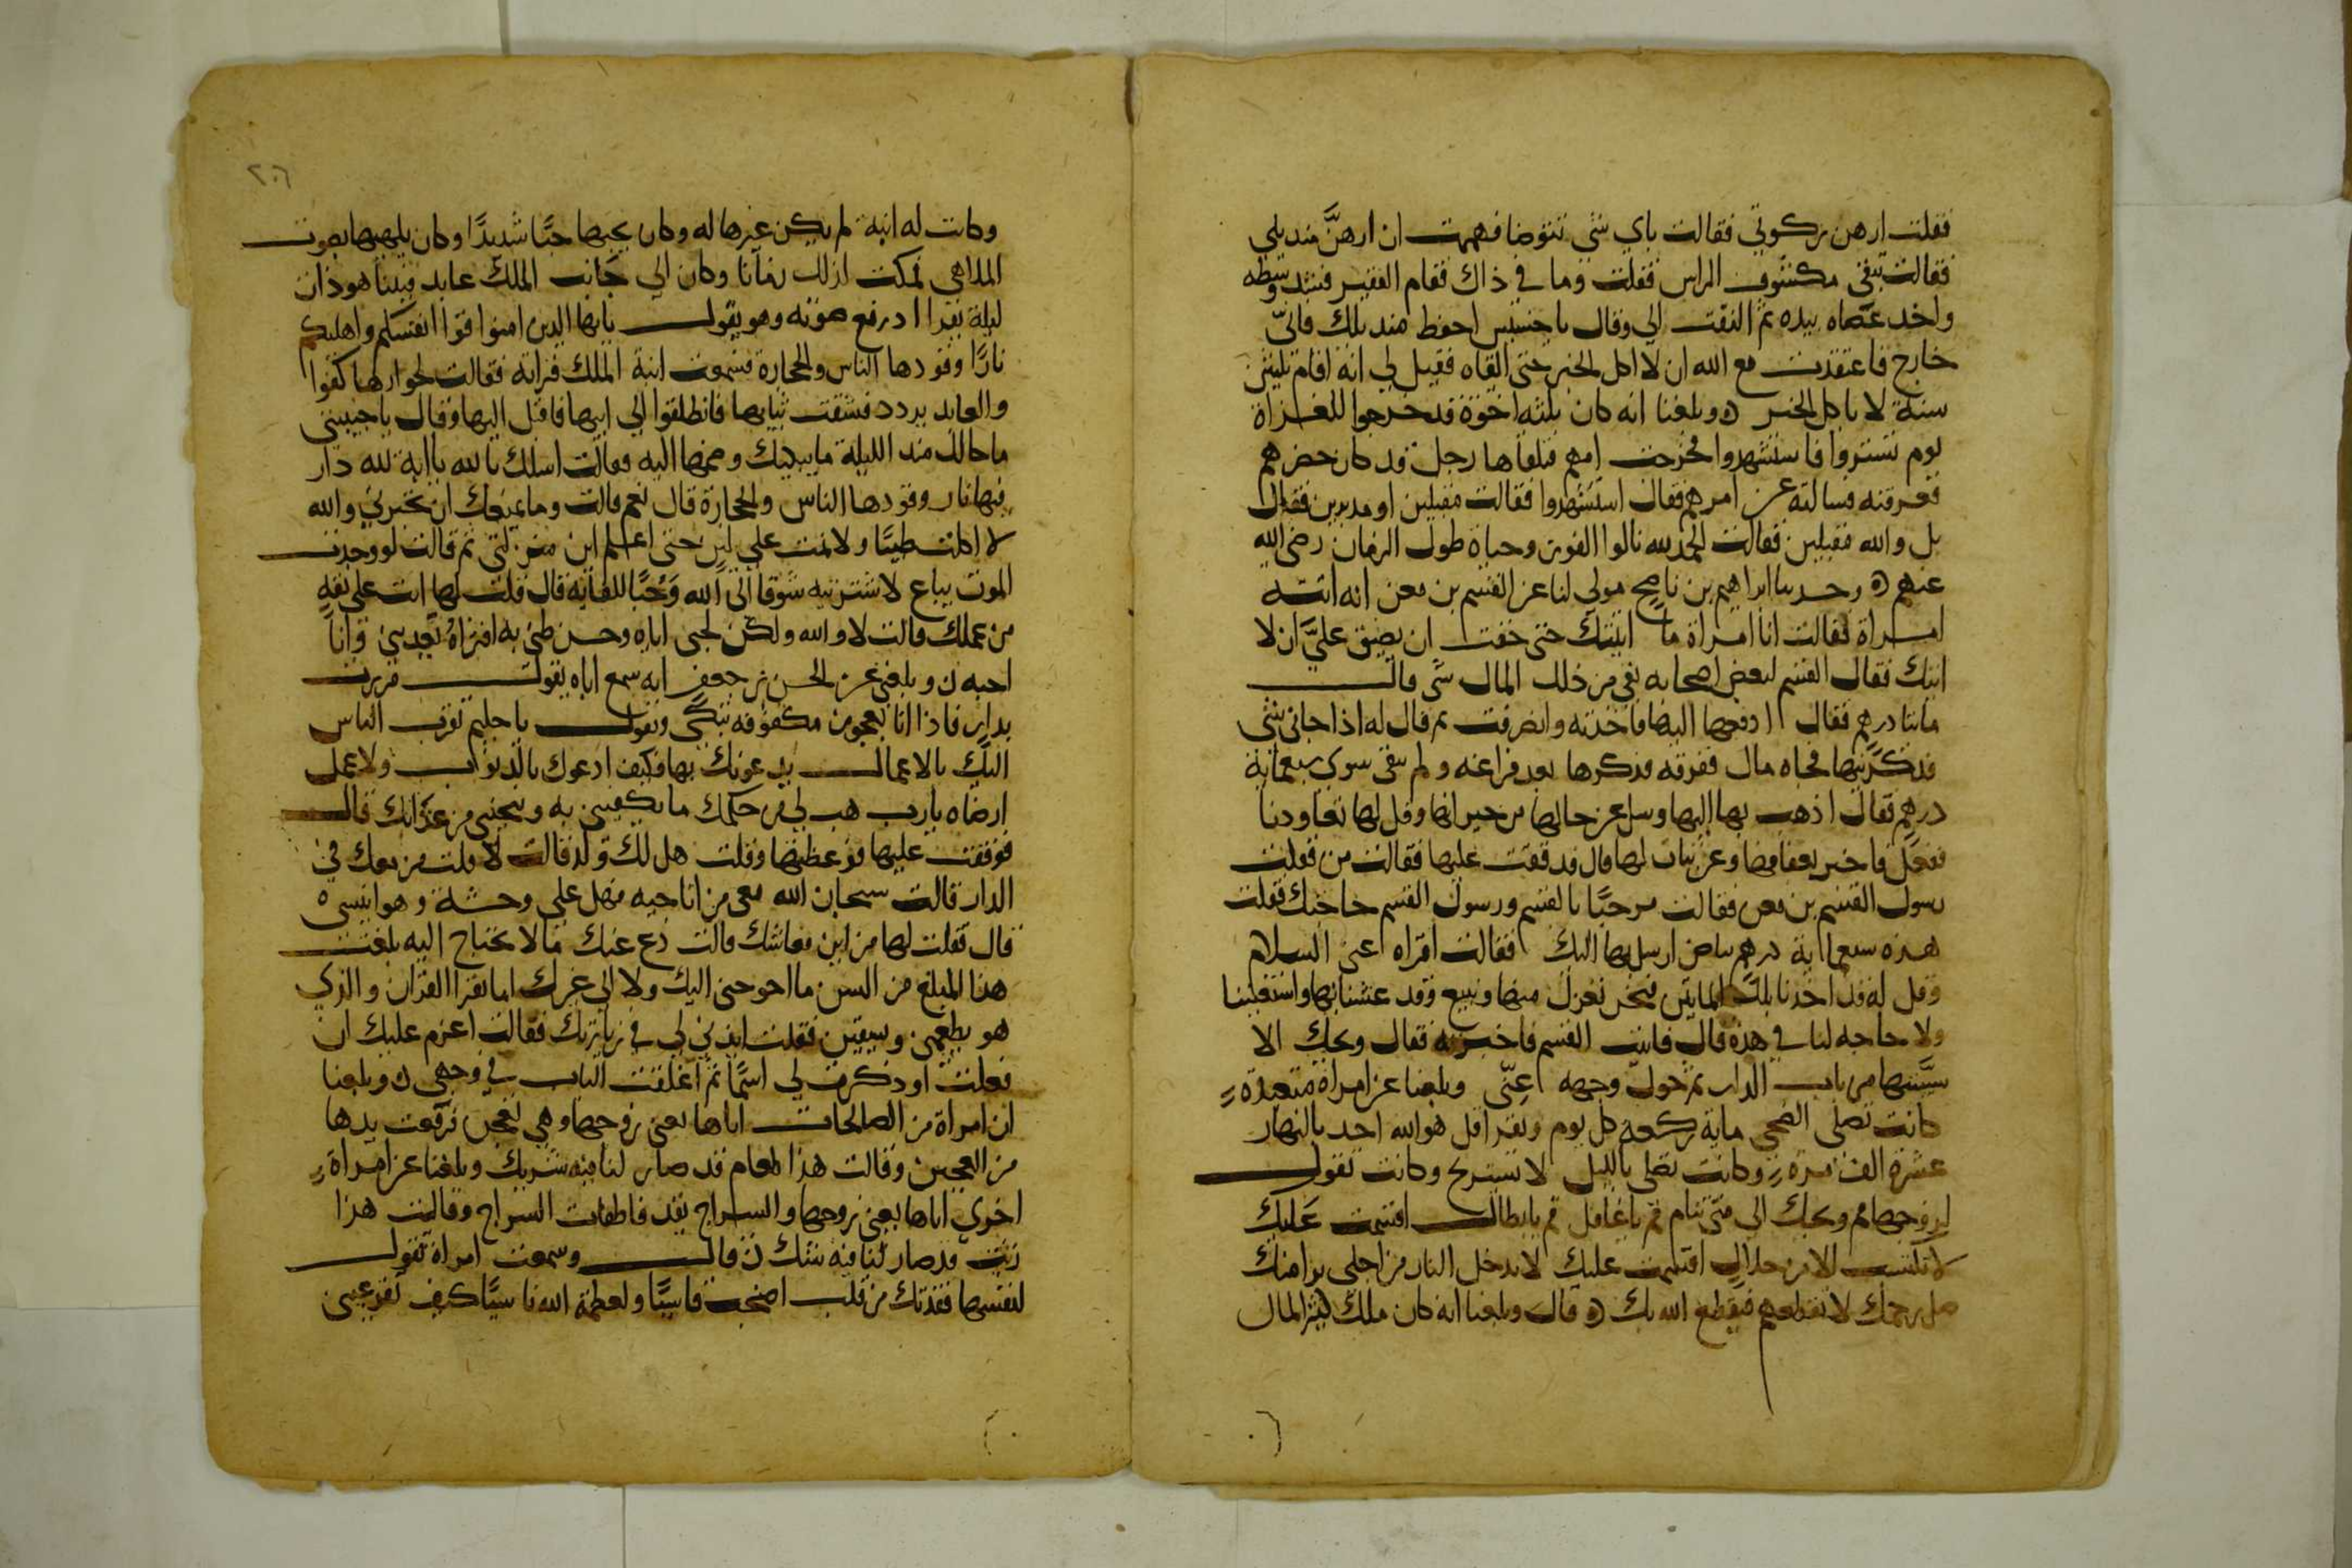 فقلت ارهن ركوتي فقالت باي شي تتوضا فهممت ان ارهن منديلي
فقالت تبقى مكشوف الراس فقلت وما في ذاك فقام الفقير فشد وسطه
واخد عصاه بيده ثم التفت الي وقال يا خسيس احفظ منديلك فاني
خارج فاعتقدت مع الله ان لا اكل الخبز حتى القاه فقيل لي انه اقام ثلثين
سنة لا ياكل الخبز ه وبلغنا انه كان ثلثه اخوة قد خرجوا للغزاة
يوم تستروا فاستشهدوا فخرجت امهم فتلقاها رجل قد كان حضرهم
فعرفته فسالته عن امرهم فقال استشهدوا فقالت مقبلين او مدبرين فقال
بل والله مقبلين فقالت الحمد لله نالوا الفوز وحياة طول الزمان رضي الله
عنهم ه وحدثنا ابراهيم بن ناصح مولى لنا عن القسم بن معن انه اتته
امراة فقالت انا امراة ما اتيتك حتى خفت ان يضيق علي ان لا
اتيك فقال القسم لبعض اصحابه بقي من ذلك المال شي قال
مايتا درهم فقال ادفعها اليها فاخذته وانصرفت ثم قال له اذا جاني شي
فذكرنيها فجاه مال ففرقه فذكرها بعد فراغه ولم يبقى سوى سبعماية
درهم فقال اذهب بها اليها وسل عن حالها من جيرانها وقل لها تعاودنا
ففعل فاخبر بعفافها وعن بنات لها قال فدققت عليها فقالت من فقلت
رسول القسم بن معن فقالت مرحبا بالقسم ورسول القسم حاجتك فقلت
هذه سبعماية درهم ارسل بها اليك فقالت اقراه اعني السلام
وقل له قد اخدنا تلك المايتين فنحن نغزل منها ونبيع وقد عشنا بها واستغنينا
ولا حاجه لنا في هذه قال فاتيت القسم فاخبرته فقال ويحك الا
سيبتها من باب الدار ثم حول وجهه عني وبلغنا عن امراة متعبدة
كانت تصلي الضحى ماية ركعة كل يوم وتقرا قل هو الله احد بالنهار
عشرة الف مرة وكانت تصلي بالليل لا تستريح وكانت تقول
لزوجها قم ويحك الى متى تنام قم يا غافل قم يا بطال اقسمت عليك
لا تكتسب الا من حلال اقسمت عليك لا تدخل النار من اجلي بر امك
صل رحمك لا تقطعهم فيقطع الله بك ه قال وبلغنا انه كان ملك كثير المال
٢٠٦
وكانت له ابنة لم يكن غيرها له وكان يحبها حبا شديدا وكان يلهيها بصوت
الملاهي فمكث كذلك زمانا وكان الى جانب الملك عابد فبينا هو ذات
ليلة يقرا اذ رفع صوته وهو يقول يايها الدين امنوا قوا انفسكم واهليكم
نارا وقودها الناس والحجارة فسمعت ابنة الملك قراته فقالت لجوارها كفوا
والعابد يردد فشقت ثيابها فانطلقوا الى ابيها فاقبل اليها وقال يا حبيبتي
ما حالك مند الليلة ما يبكيك وضمها اليه فقالت اسلك بالله يا ابة لله دار
فيها نار وقودها الناس والحجارة قال نعم قالت وما يمنعك ان تخبرني والله
لا اكلت طيبا ولا نمت على لين حتى اعلم اين منزلتي ثم قالت لو وجدت
الموت يباع لاشتريته شوقا الى الله وحبا للقايه قال قلت لها انت على ثقه
من عملك قالت لا والله ولكن لحبي اياه وحسن ظني به افتراه يعدبني وانا
احبه ن وبلغني عن الحسن بن جعفر انه سمع اباه يقول مررت
بدار فاذا انا بعجوز مكفوفه تبكي وتقول يا حليم تقرب الناس
اليك بالاعمال يدعونك بها فكيف ادعوك بالذنوب ولا عمل
ارضاه يا رب هب لي من حكمك ما يكفيني به وينجني من عذابك قال
فوقفت عليها فوعظتها وقلت هل لك ولد قالت لا قلت فمن معك في
الدار قالت سبحان الله معي من اناجيه فهل علي وحشة وهو انيسي ه
قال فقلت لها من اين معاشك قالت دع عنك ما لا تحتاج اليه بلغت
هذا المبلغ من السن ما احوجني اليك ولا الى غيرك اما تقرا القران والذي
هو يطعمني ويسقين فقلت ايذني لي في زيارتك فقالت اعزم عليك ان
فعلت او ذكرت لي اسما ثم اغلقت الباب في وجهي ن وبلغنا
ان امراة من الصالحات اتاها نعي زوجها وهي تعجن فرفعت يدها
من العجين وقالت هذا طعام قد صار لنا فيه شريك وبلغنا عن امراة
اخرى اتاها نعي زوجها والسراج يقد فاطفات السراج وقالت هذا
زيت قد صار لنا فيه شرك ن قال وسمعت امراة تقول
لنفسها فقدتك من قلب اصبحت قاسيا ولعظمة الله ناسيا كيف تقر عيني